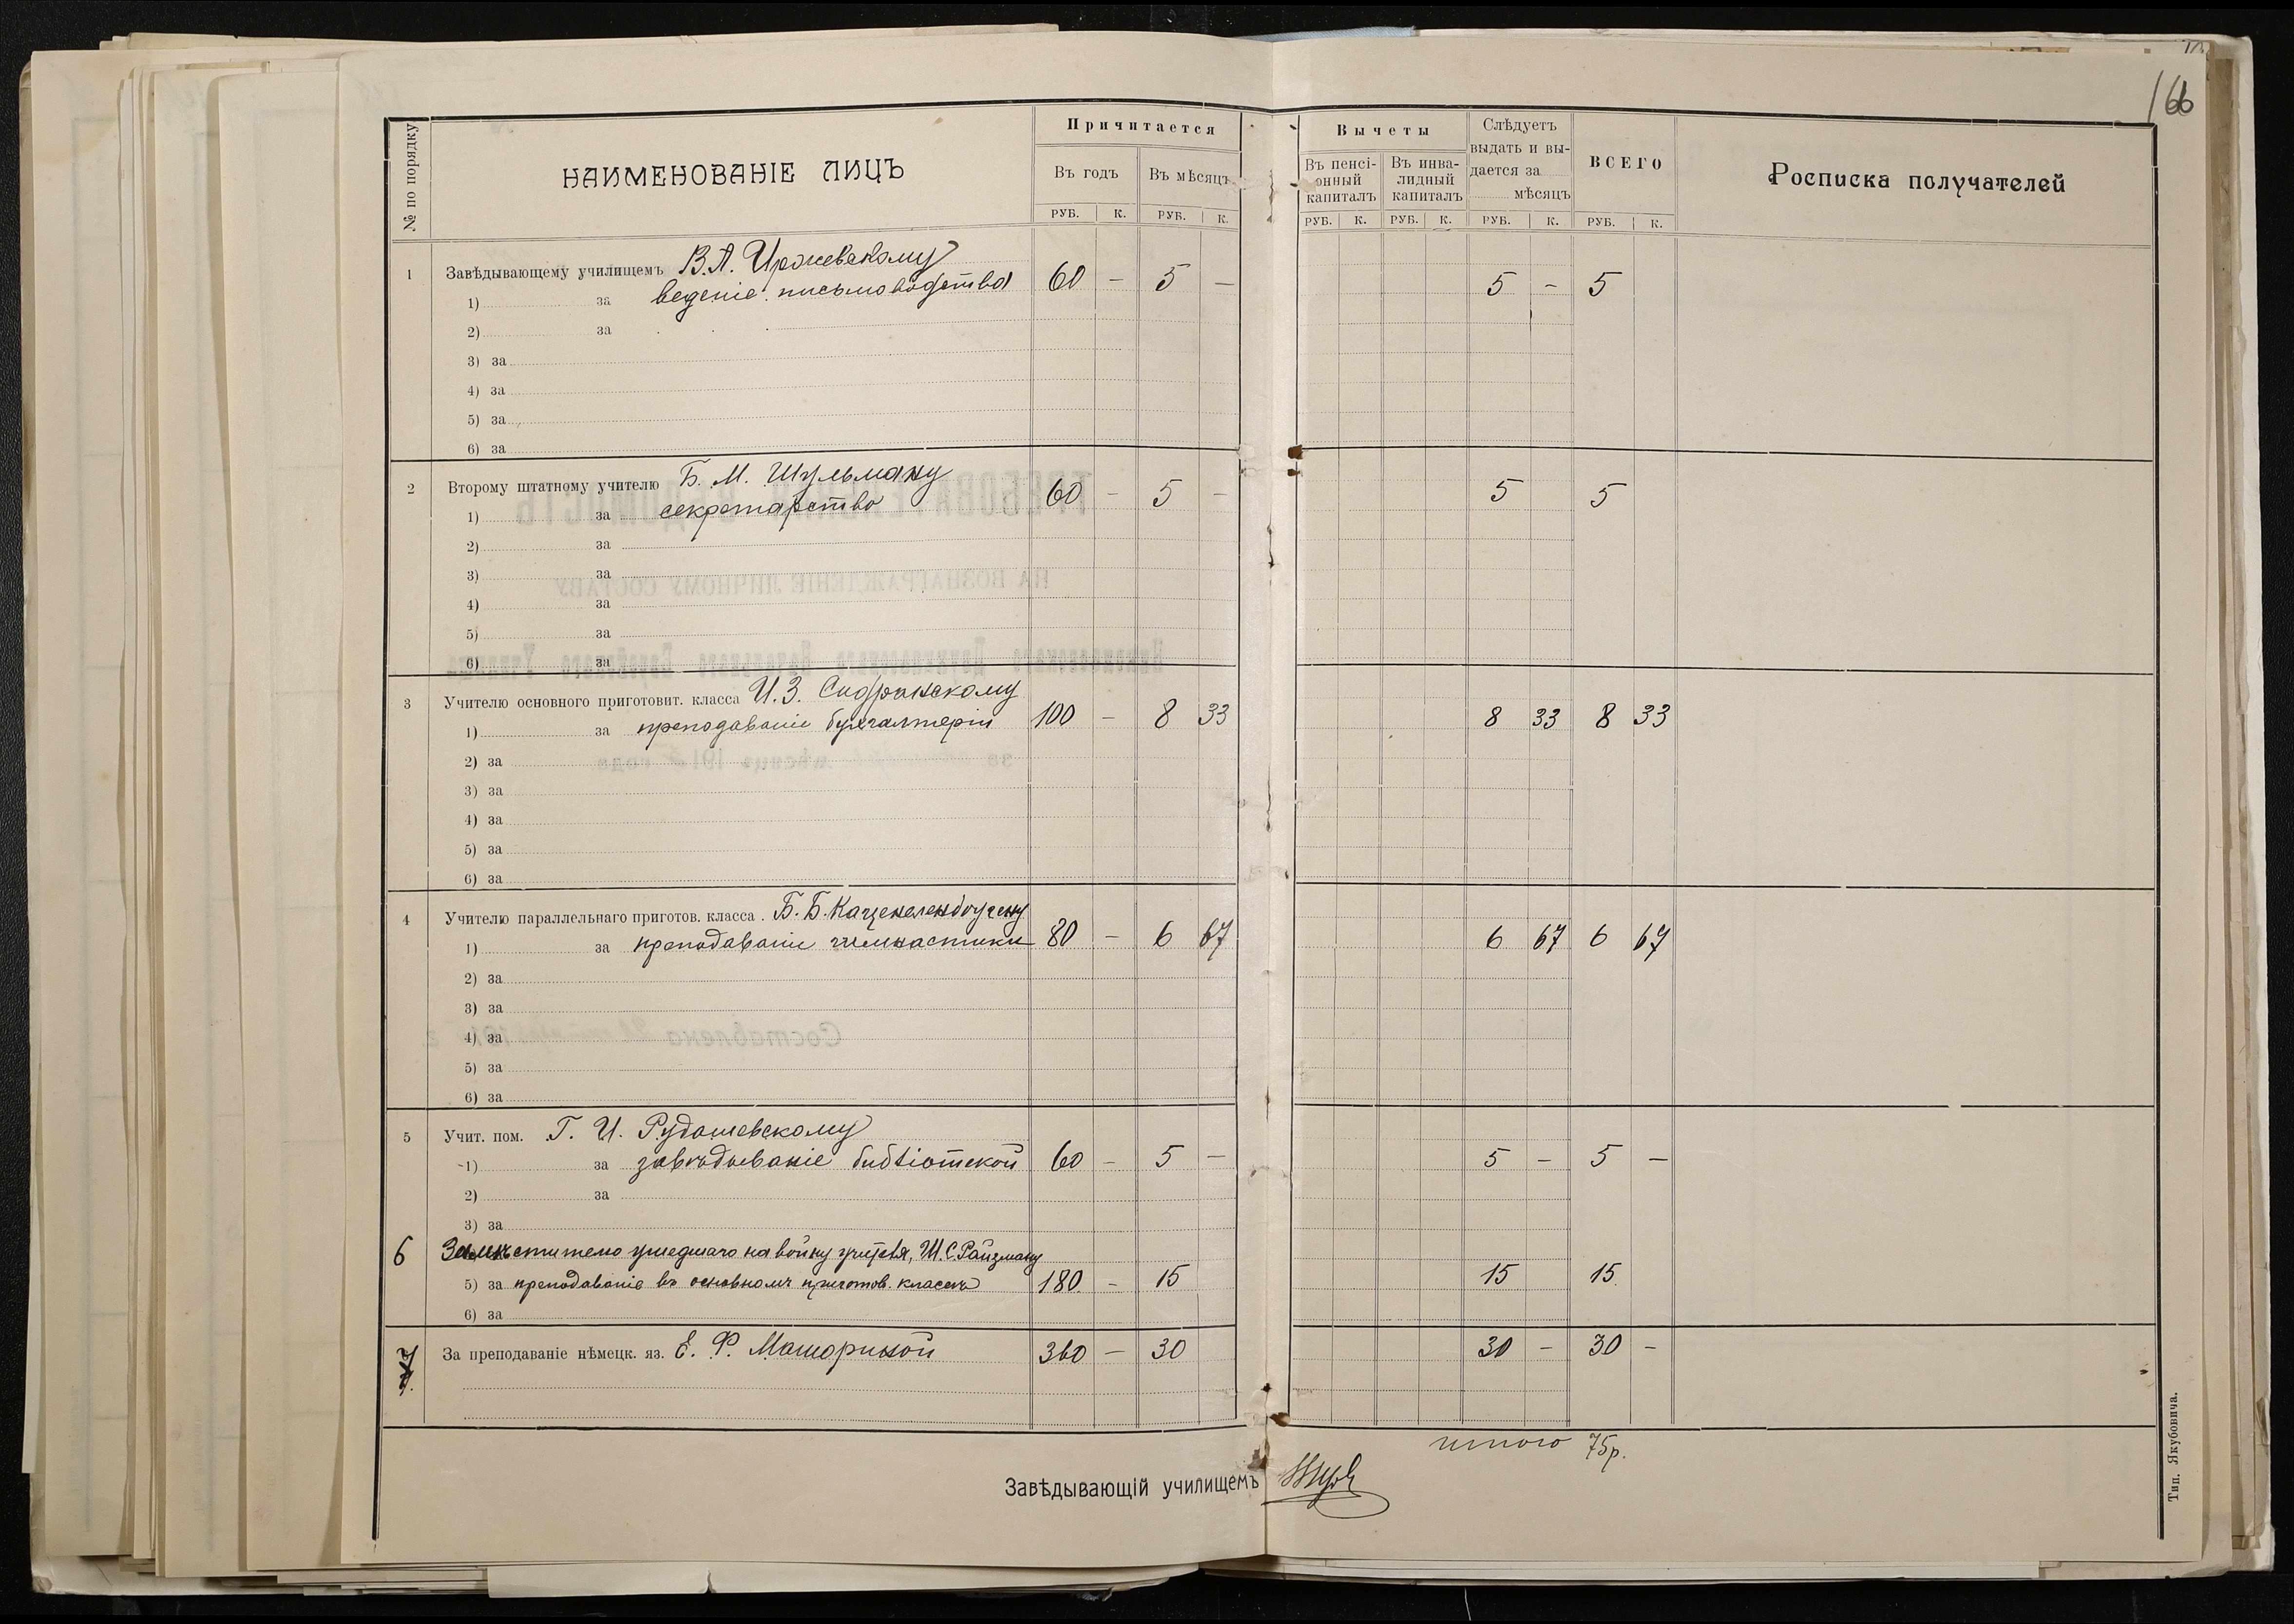 166
№ по порядку
НАИМЕНОВАНІЕ ЛИЦЪ
Причитается
Въ годъ
Въ мѣсяцъ
РУБ. К. РУБ. К.
Вычеты
Въ пенсі-
онный
капиталъ
Въ инва-
лидный
капиталъ
Слѣдуетъ
выдать и вы-
дается за
мѣсяцъ
ВСЕГО
Росписка получателей
РУБ. К. РУБ. К. РУБ. К. РУБ. К.
1 Завѣдывающему училищемъ В. А.
1) за веденіе письмоводства 60 — 5 — 5 — 5
2) за
3) за
4) за
5) за
6) за
2 Второму штатному учителю Б. М. Шульману
1) за секретарство 60 — 5 — 5 5
2) за
3) за
4) за
5) за
6) за
3 Учителю основного приготовит. класса И. З. Сидранскому
1) за преподаваніе бухгалтеріи 100 — 8 33 8 33 8 33
2) за
3) за
4) за
5) за
6) за
4 Учителю параллельнаго приготов. класса. Б. Б. Каценеленбогену
1) за преподаваніе гимнастики 80 — 6 67 6 67 6 67
2) за
3) за
4) за
5) за
6) за
5 Учит. пом. Г. И. Рудашевскому
1) за завѣдываніе библіотекой 60 — 5 — 5 — 5 —
2) за
3) за
6 Замѣстителю ушедшаго на войну учителя, Ш. С. Райзману
5) за преподаваніе въ основномъ приготов. классѣ 180 — 15 15 15
6) за
7 За преподаваніе нѣмецк. яз. Е. Ф. Машориной 360 — 30 30 — 30 —
итого 75р.
Завѣдывающій училищемъ
Тип. Якубовича.